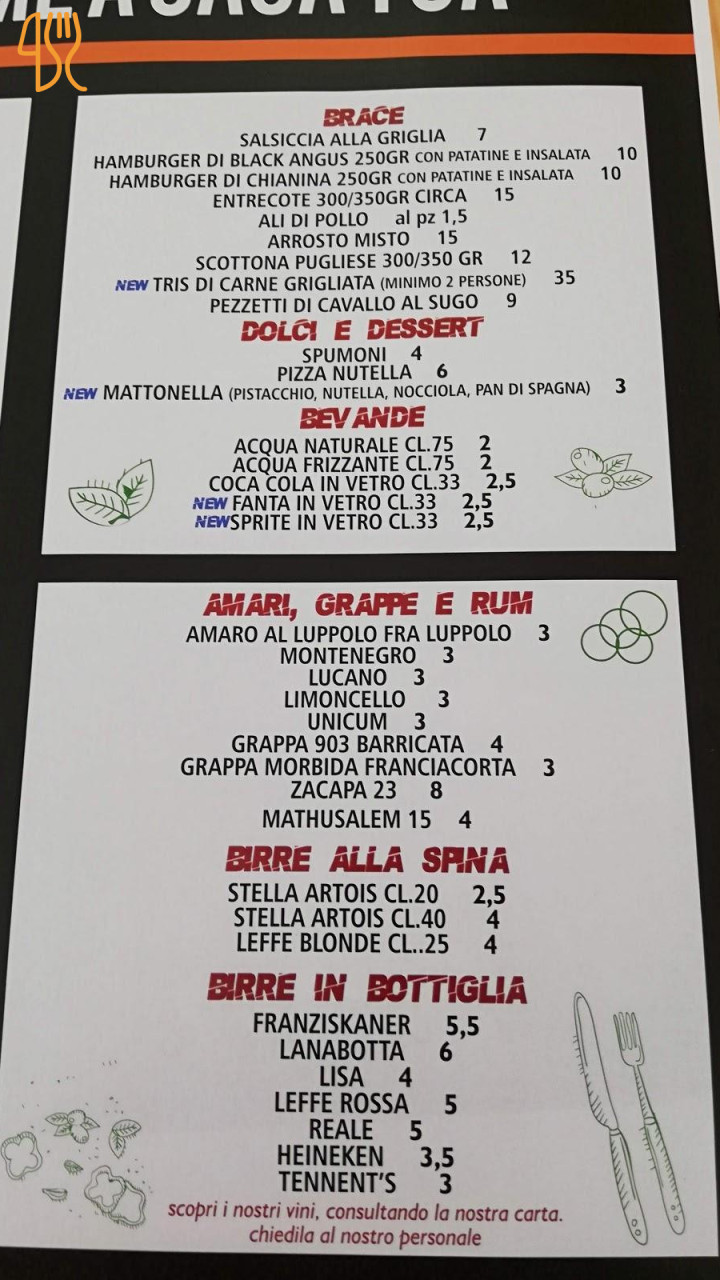 BRACE
SALSICCIA ALLA GRIGLIA 7
HAMBURGER DI BLACK ANGUS 250GR CON PATATINE E INSALATA 10
HAMBURGER DI CHIANINA 250GR CON PATATINE E INSALATA 10
ENTRECOTE 300/350GR CIRCA 15
ALI DI POLLO al pz 1,5
ARROSTO MISTO 15
SCOTTONA PUGLIESE 300/350 GR 12
NEW TRIS DI CARNE GRIGLIATA (MINIMO 2 PERSONE) 35
PEZZETTI DI CAVALLO AL SUGO 9
DOLCI E DESSERT
SPUMONI 4
PIZZA NUTELLA 6
NEW MATTONELLA (PISTACCHIO, NUTELLA, NOCCIOLA, PAN DI SPAGNA) 3
BEVANDE
ACQUA NATURALE CL.75 2
ACQUA FRIZZANTE CL.75 2
COCA COLA IN VETRO CL.33 2,5
NEW FANTA IN VETRO CL.33 2,5
NEW SPRITE IN VETRO CL.33 2,5
AMARI, GRAPPE E RUM
AMARO AL LUPPOLO FRA LUPPOLO 3
MONTENEGRO 3
LUCANO 3
LIMONCELLO 3
UNICUM 3
GRAPPA 903 BARRICATA 4
GRAPPA MORBIDA FRANCIACORTA 3
ZACAPA 23 8
MATHUSALEM 15 4
BIRRE ALLA SPINA
STELLA ARTOIS CL.20 2,5
STELLA ARTOIS CL.40 4
LEFFE BLONDE CL..25 4
BIRRE IN BOTTIGLIA
FRANZISKANER 5,5
LANABOTTA 6
LISA 4
LEFFE ROSSA 5
REALE 5
HEINEKEN 3,5
TENNENT'S 3
scopri i nostri vini, consultando la nostra carta.
chiedila al nostro personale